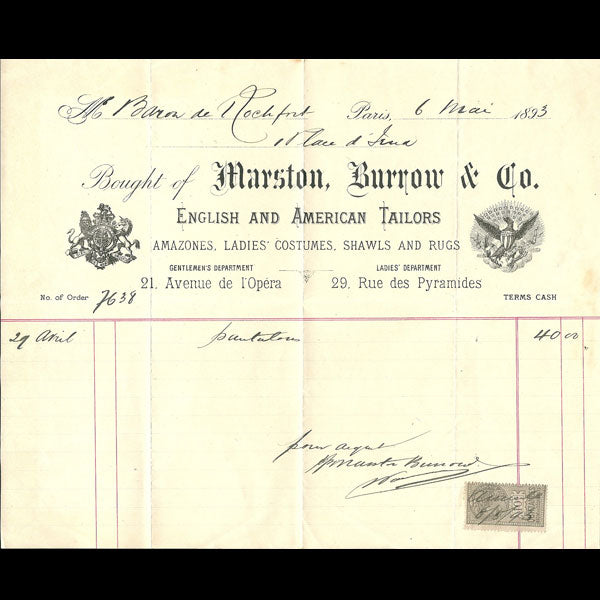 Mr Baron de Rochfort Paris, 6 Mai 1893
Place d'Iena
Bought of Marston, Burrow & Co.
ENGLISH AND AMERICAN TAILORS
AMAZONES, LADIES' COSTUMES, SHAWLS AND RUGS
GENTLEMEN'S DEPARTMENT LADIES' DEPARTMENT
21. Avenue de l'Opéra 29, Rue des Pyramides
No. of Order 7638 TERMS CASH
29 Avril pantalon 40 00
pour acquit
Burrow